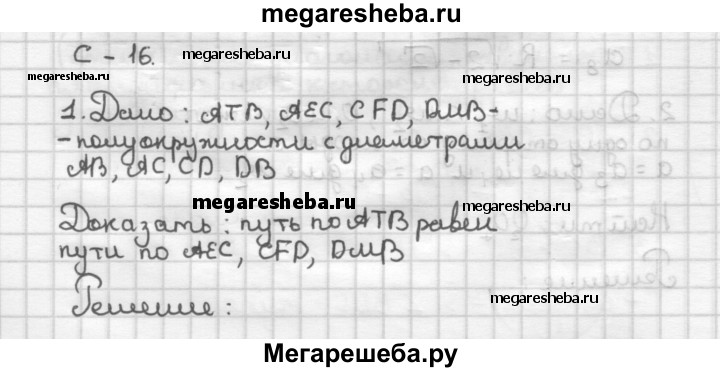 megaresheba.ru
С - 16.
megaresheba.ru
megaresheba.ru
megaresheba.ru
1. Дано: ATB, AEC, CFD, DMB-
-полуокружности с диаметрами
AB, AC, CD, DB
megaresheba.ru
Доказать: путь по ATB равен
пути по AEC, CFD, DMB
megaresheba.ru
Решение:
Мегарешеба.ру